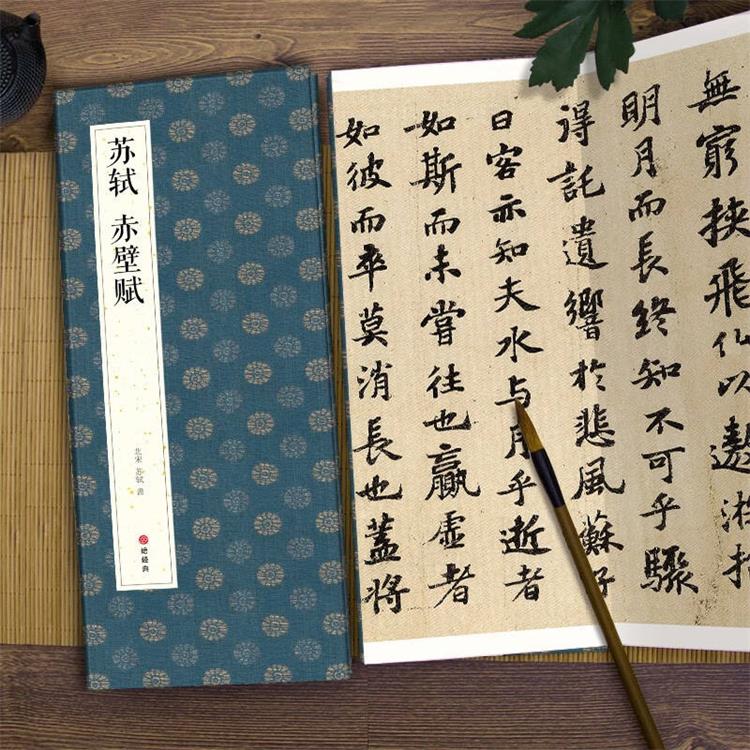 苏轼 赤壁赋
北宋 苏轼 書
無窮挾飛仙以遨游抱
明月而長終知不可乎驟
得託遺響於悲風蘇子
曰客亦知夫水与月乎逝者
如斯而未嘗往也贏虛者
如彼而卒莫消長也蓋將